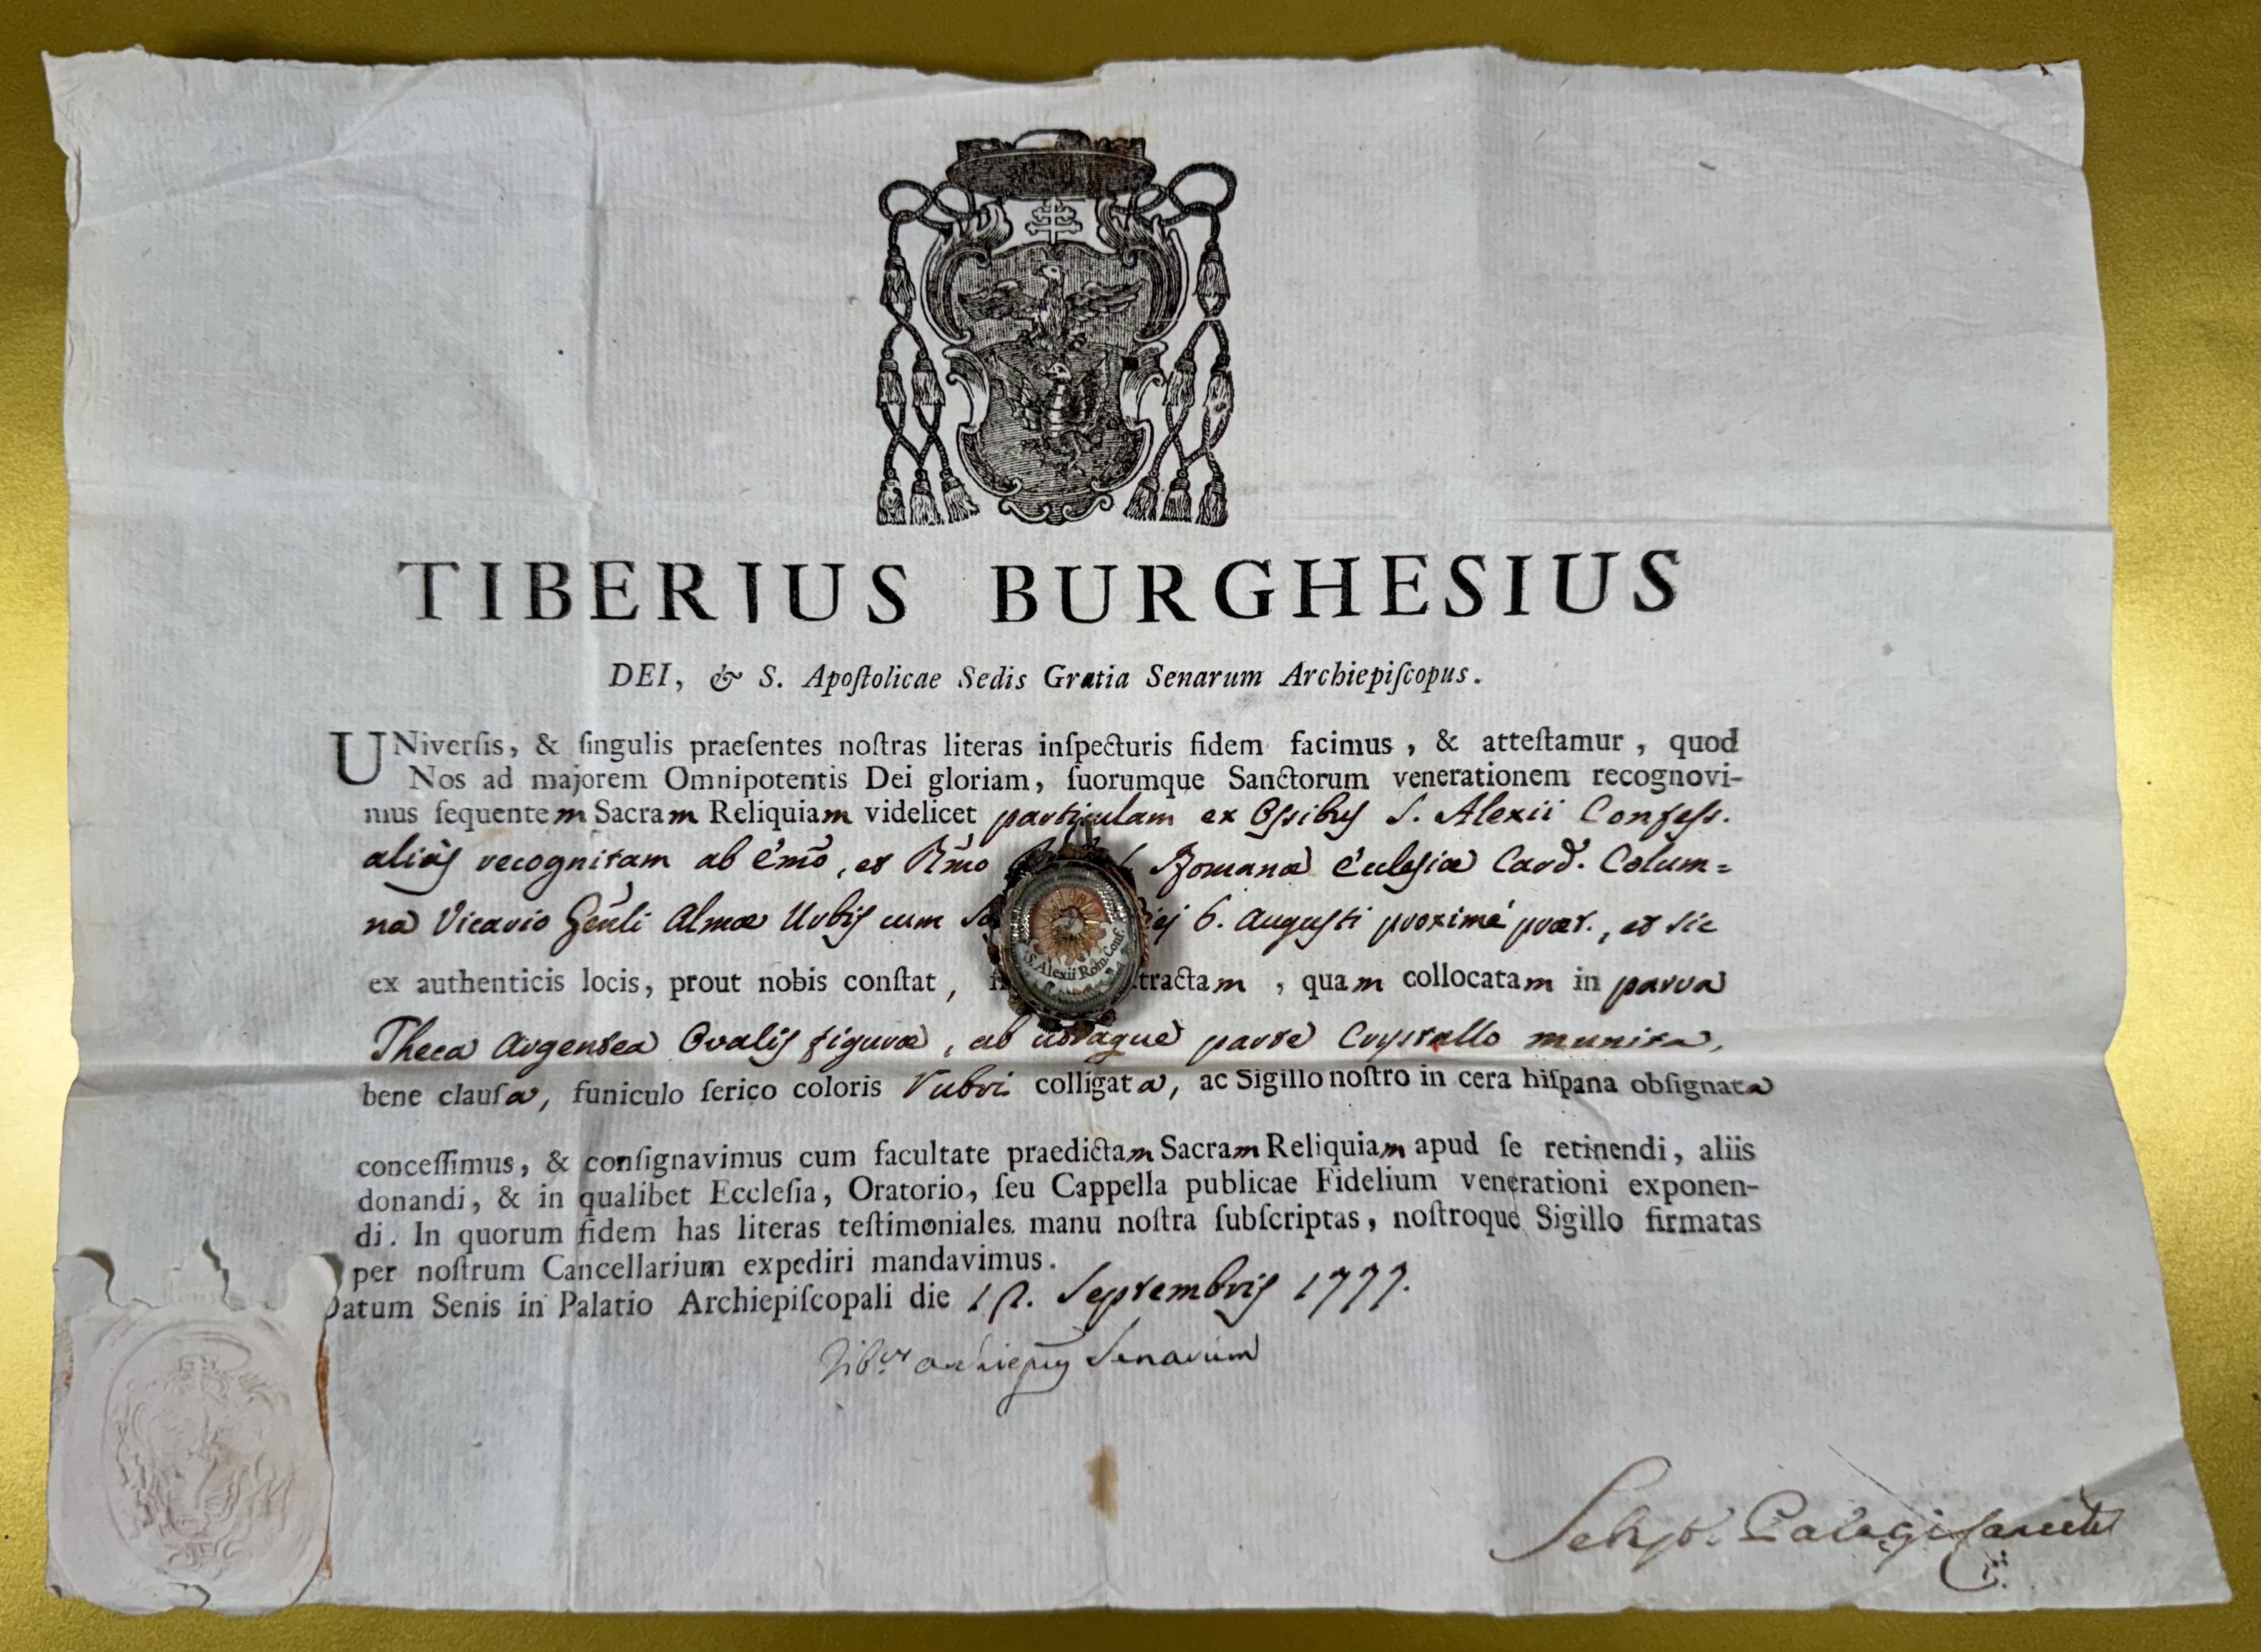 TIBERIUS BURGHESIUS
DEI, & S. Apoſtolicae Sedis Gratia Senarum Archiepiſcopus.
UNiverſis, & ſingulis praeſentes noſtras literas inſpecturis fidem facimus, & atteſtamur, quod
Nos ad majorem Omnipotentis Dei gloriam, ſuorumque Sanctorum venerationem recognovi-
mus ſequentem Sacram Reliquiam videlicet particulam ex Ossibus S. Alexii Confess.
aliàs recognitam ab Emō, et Rmō Romanæ Ecclesiæ Card. Colum=
na Vicario Genli Almæ Urbis cum 6. Augusti proximè præt., et sic
ex authenticis locis, prout nobis conſtat, tractam, quam collocatam in parva
Theca Argentea Ovalis figuræ, ab utraque parte Crystallo munita,
bene clauſa, funiculo ſerico coloris rubri colligata, ac Sigillo noſtro in cera hiſpana obſignata
conceſſimus, & conſignavimus cum facultate praedictam Sacram Reliquiam apud ſe retinendi, aliis
donandi, & in qualibet Eccleſia, Oratorio, ſeu Cappella publicae Fidelium venerationi exponen-
di. In quorum fidem has literas teſtimoniales manu noſtra ſubſcriptas, noſtroque Sigillo firmatas
per noſtrum Cancellarium expediri mandavimus.
Datum Senis in Palatio Archiepiſcopali die Septembris 1777.
Tibus archiepus Senarum
S. Alexii Rom. Conf.